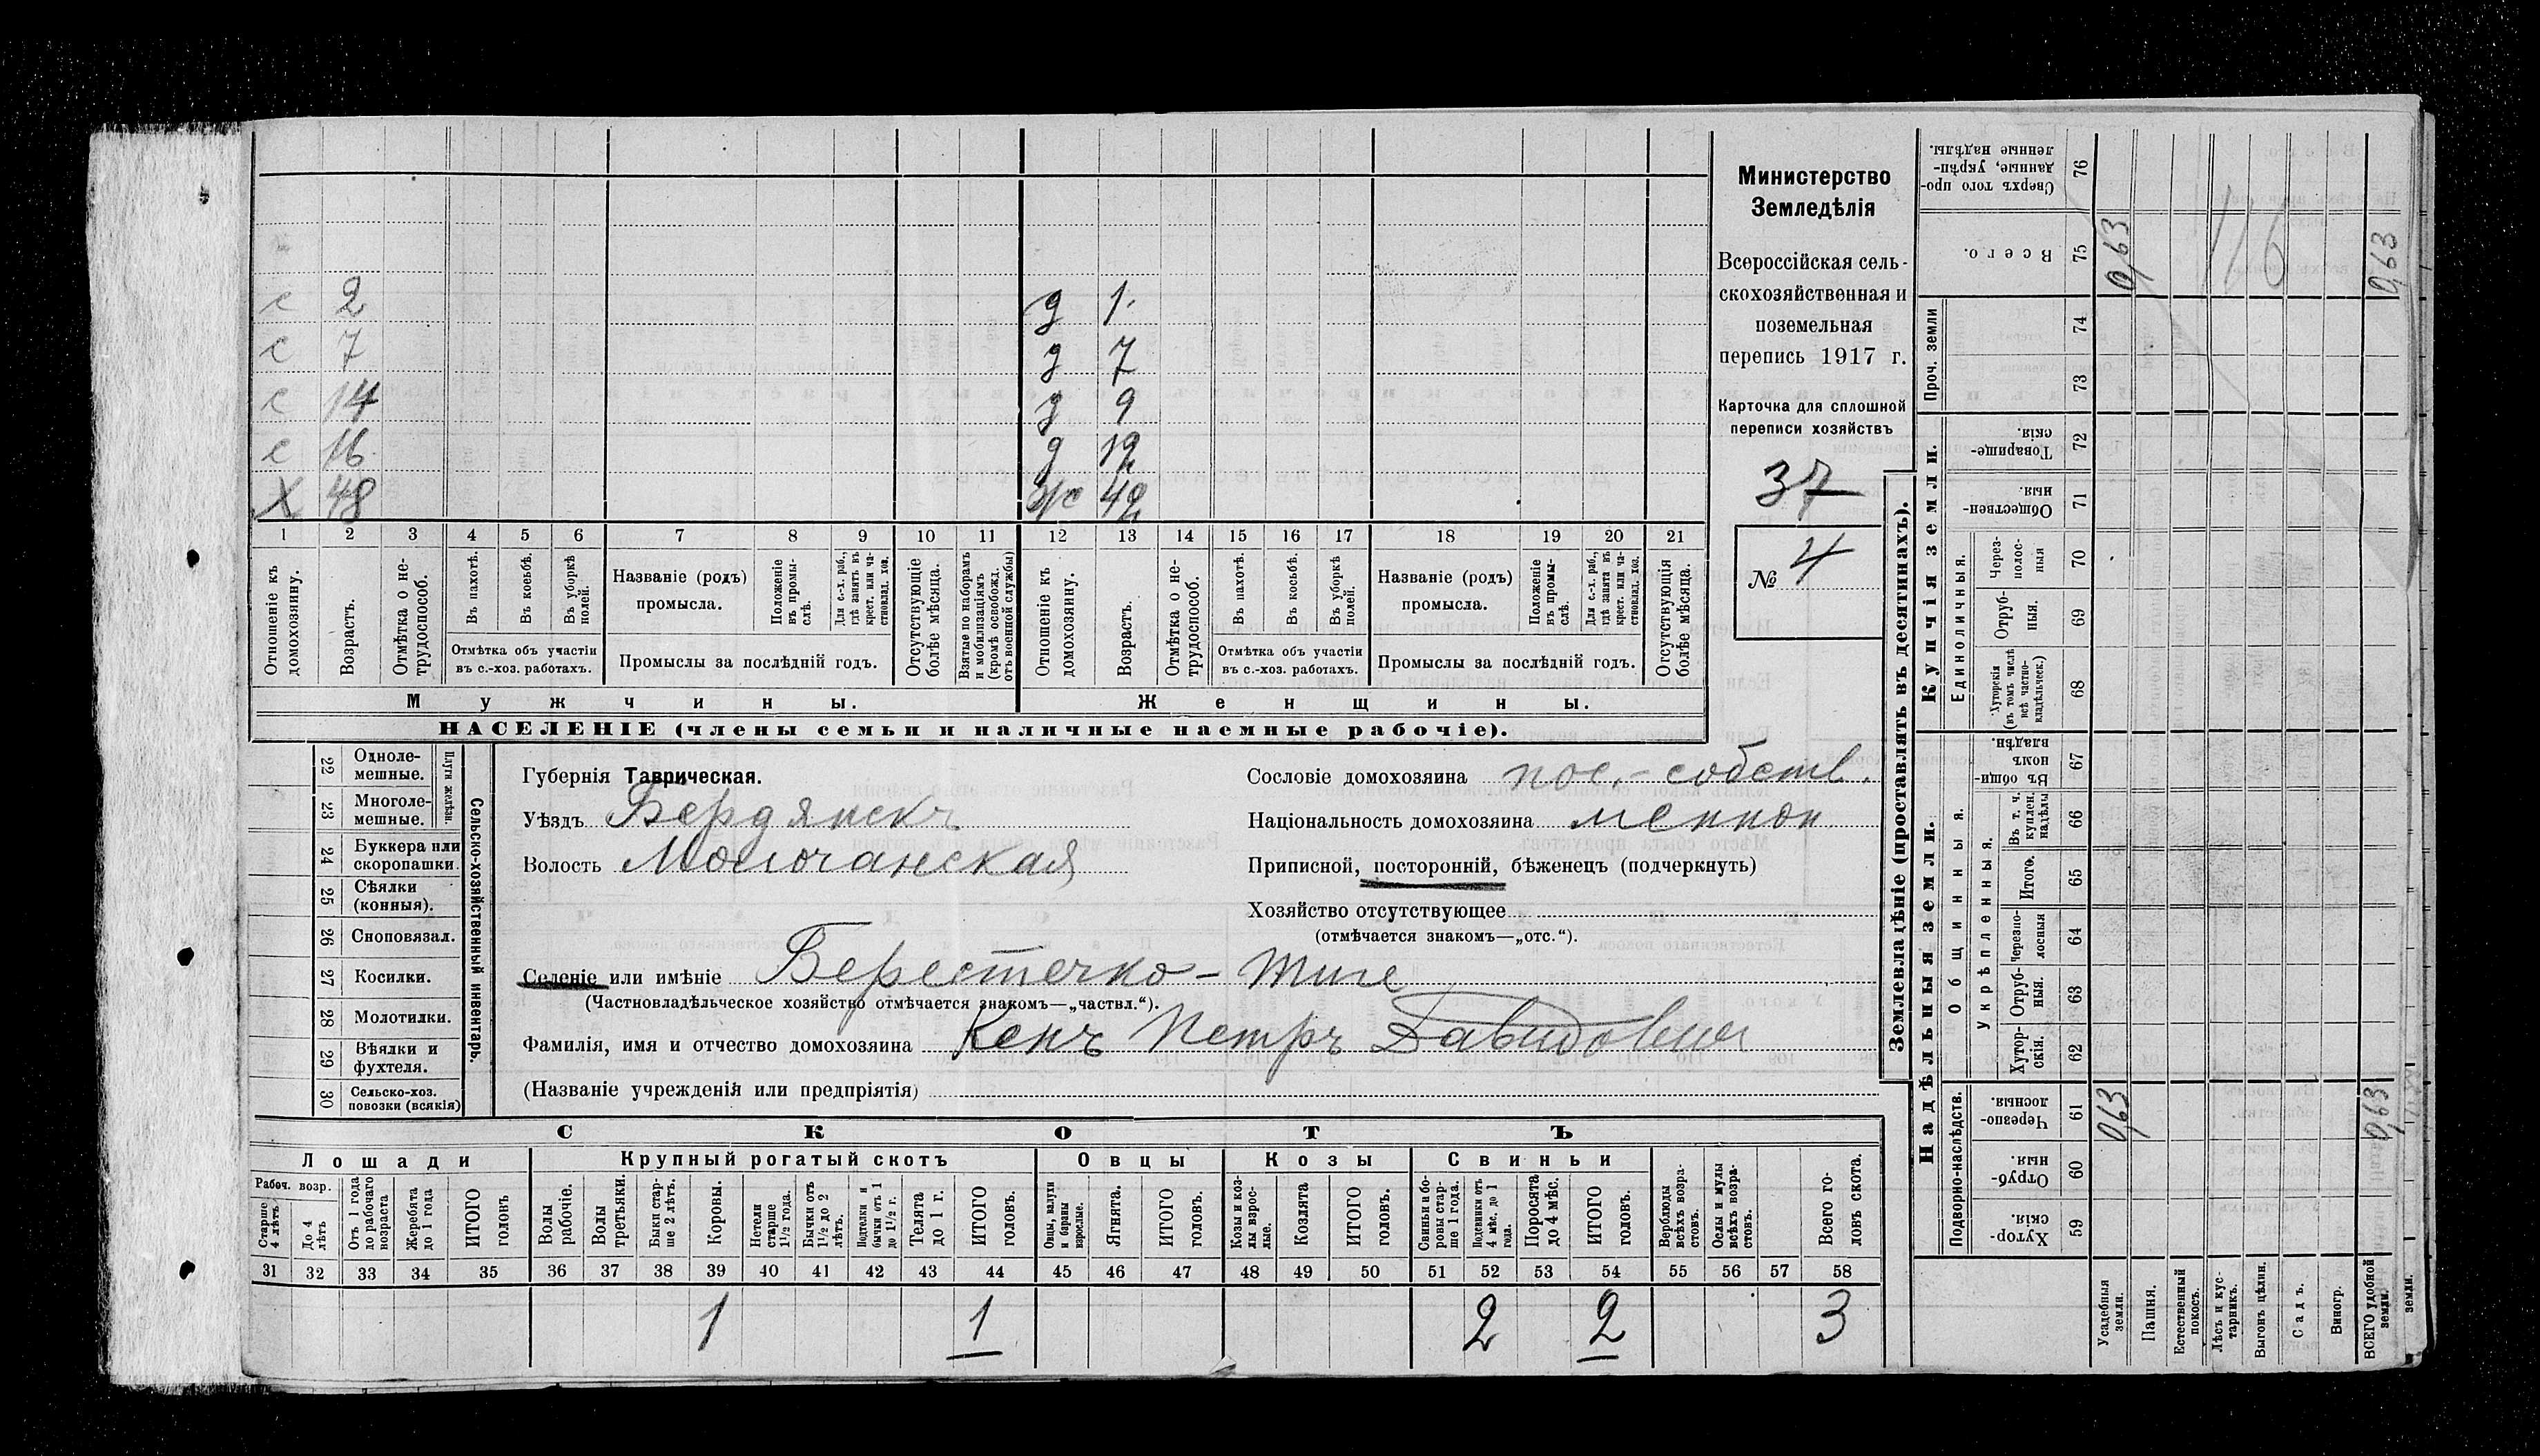 с 2 д 1.
с 7 д 7
с 14 д 9
с 16 д 12
Х 48 ж 42
1 2 3 4 5 6 7 8 9 10 11 12 13 14 15 16 17 18 19 20 21
Отношеніе къ домохозяину.
Возрастъ.
Отмѣтка о не-трудоспособ.
Въ пахотѣ.
Въ косьбѣ.
Въ уборкѣ полей.
Отмѣтка объ участіи въ с.-хоз. работахъ.
Названіе (родъ) промысла.
Положеніе въ промы-слѣ.
Для с.-х. раб., гдѣ занятъ въ крест. или ча-стновлад. хоз.
Промыслы за послѣдній годъ.
Отсутствующіе болѣе мѣсяца.
Взятые по наборамъ и мобилизаціямъ (кромѣ освобожд. отъ военной службы)
Отношеніе къ домохозяину.
Возрастъ.
Отмѣтка о не-трудоспособ.
Въ пахотѣ.
Въ косьбѣ.
Въ уборкѣ полей.
Отмѣтка объ участіи въ с.-хоз. работахъ.
Названіе (родъ) промысла.
Положеніе въ промы-слѣ.
Для с.-х. раб., гдѣ занята въ крест. или ча-стновлад. хоз.
Промыслы за послѣдній годъ.
Отсутствующія болѣе мѣсяца.
Мужчины.
Женщины.
НАСЕЛЕНІЕ (члены семьи и наличные наемные рабочіе).
Министерство
Земледѣлія
Всероссійская сель-
скохозяйственная и
поземельная
перепись 1917 г.
Карточка для сплошной
переписи хозяйствъ
37
№ 4
Сельско-хозяйственный инвентарь.
Плуги желѣзн.
22 Одноле-мешные.
23 Многоле-мешные.
24 Буккера или скоропашки.
25 Сѣялки (конныя).
26 Сноповязал.
27 Косилки.
28 Молотилки.
29 Вѣялки и фухтеля.
30 Сельско-хоз. повозки (всякія)
Губернія Таврическая.
Уѣздъ Бердянскъ
Волость Молочанская
Селеніе или имѣніе Берестечко - Тиге
(Частновладѣльческое хозяйство отмѣчается знакомъ—„частвл.“).
Фамилія, имя и отчество домохозяина Кенъ Петръ Давидовичъ
(Названіе учрежденія или предпріятія)
Сословіе домохозяина пос.-собств.
Національность домохозяина меннон
Приписной, посторонній, бѣженецъ (подчеркнуть)
Хозяйство отсутствующее
(отмѣчается знакомъ—„отс.“).
СКОТЪ
Лошади Крупный рогатый скотъ Овцы Козы Свиньи
Рабоч. возр.
Старше 4 лѣтъ
До 4 лѣтъ
Отъ 1 года до рабочаго возраста
Жеребята до 1 года
ИТОГО головъ
Волы рабочіе.
Волы третьяки.
Быки стар-ше 2 лѣтъ.
Коровы.
Нетели старше 1½ года.
Бычки отъ 1½ до 2 лѣтъ.
Подтелки и бычки отъ 1 до 1½ г.
Телята до 1 г.
ИТОГО головъ.
Овцы, валухи и бараны взрослые.
Ягнята.
ИТОГО головъ.
Козы и коз-лы взрос-лые.
Козлята
ИТОГО головъ.
Свиньи и бо-ровы стар-ше 1 года.
Подсвинки отъ 4 мѣс. до 1 года.
Поросята до 4 мѣс.
ИТОГО головъ.
Верблюды всѣхъ возра-стовъ.
Ослы и мулы всѣхъ возра-стовъ.
Всего го-ловъ скота.
31 32 33 34 35 36 37 38 39 40 41 42 43 44 45 46 47 48 49 50 51 52 53 54 55 56 57 58
1 1 2 2 3
Землевладѣніе (проставлять въ десятинахъ).
Сверхъ того про-данные, укрѣп-ленные надѣлы. 76
Всего. 75 0,63 116 0,63
Проч. земли 74
73
Купчія земли.
Товарище-скія. 72
Обществен-ныя. 71
Единоличныя.
Через-полос-ныя 70
Отруб-ныя. 69
Хуторскія (въ томъ числѣ всѣ частно-владѣльческ.) 68
Надѣльныя земли.
Общинныя.
Въ общи-номъ владѣн. 67
Укрѣпленныя.
Въ т. ч. куплен. надѣлы 66
Итого. 65
Черезпо-лосныя 64
Отруб-ныя. 63
Хутор-скія. 62
Подворно-наслѣдств.
Черезпо-лосныя. 61 0,63 0,63
Отруб-ныя. 60
Хутор-скія. 59
Усадебныя земли.
Пашня.
Естественный покосъ.
Лѣсъ и кус-тарникъ.
Выгонъ цѣлин.
Садъ.
Виногр.
ВСЕГО удобной земли.
земли.